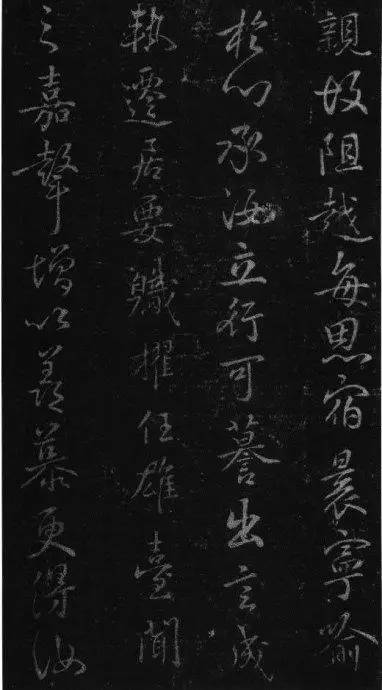 親故阻越每思宿晨寧喻
於心承汝立行可謩出言成
軌遷居要軄擢任雄臺聞
之嘉聲增以羨慕更得汝